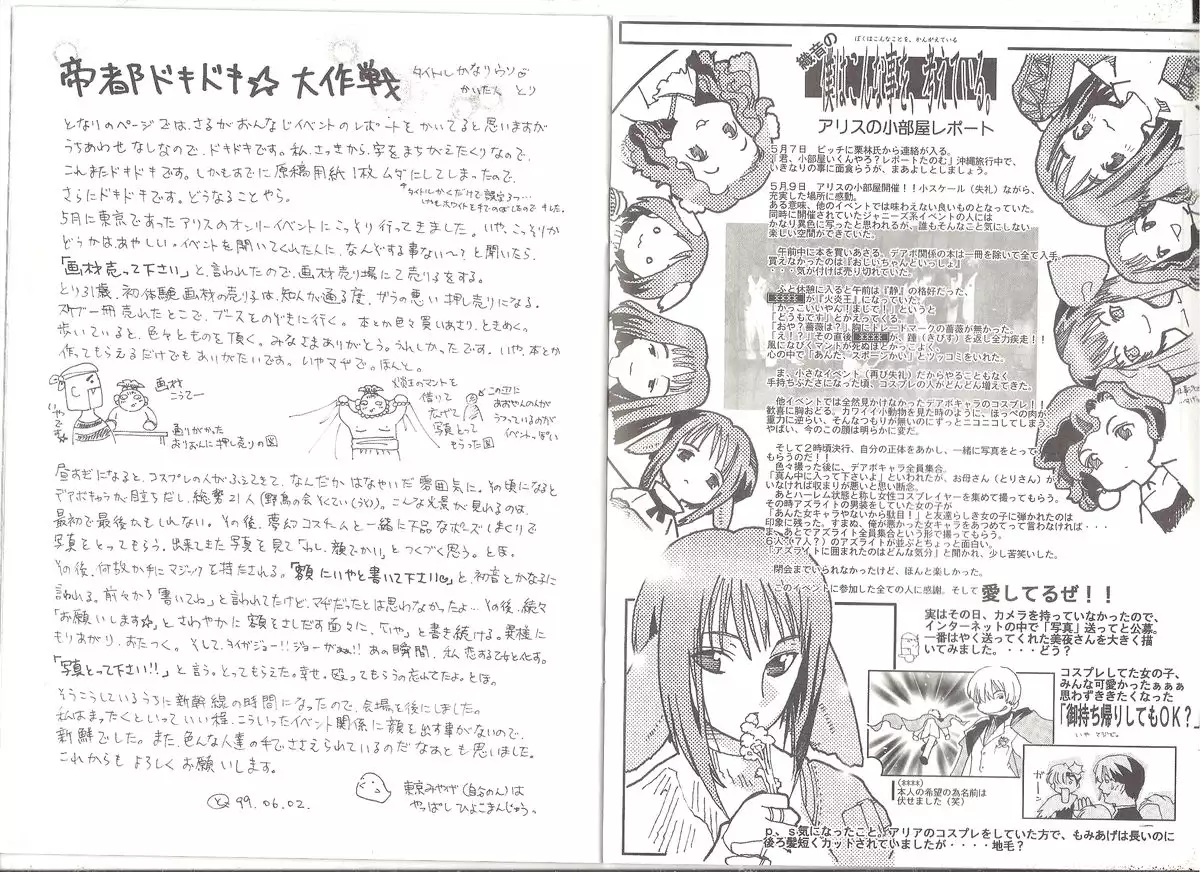 帝都ドキドキ☆大作戦
タイトルかなりウソ
かいた人 とり
となりのページでは、さるがおんなじイベントのレポートをかいてると思いますが
うちあわせなしなので、ドキドキです。私、さっきから、字をまちがえたくりなので、
これまたドキドキです。しかもすでに原稿用紙1枚ムダにしてしまったので、
さらにドキドキです。どうなることやら。
5月に東京であったアリスのオンリーイベントにこっそり行ってきました。いや、こっそりか
どうかはあやしい。イベントを開いてくれた人に、なんどする事ない〜?と聞いたら、
「画材売って下さい」と、言われたので、画材売り場にて売り子をする。
とり31歳、初体験画材の売り子は、知人が通る度、ガラの悪い押し売りになる。
スケブ一冊売れたとこで、ブースをのぞきに行く。本とか色々買いあさり、ときめく。
歩いていると、色々とものを頂く。みなさまありがとう。うれしかったです。いや、本とか
作ってもらえるだけでもありがたいです。いやマヂで。ほんと。
画材
こうてー
いやです
通りがかった
おりおんに押し売りの図
火炎王のマントを
借りて
広げて
写真とって
もらった図
この辺に
あおやんの人が
うつっているのが
イベントっぽい
昼すぎになると、コスプレの人がふえてきて、なんだかはなやいだ雰囲気に。その頃になると
デアボキャラが目立ちだし、総勢21人(野鳥の会そくてい(うそ))。こんな光景が見れるのは、
最初で最後かもしれない。その後、夢幻コスたんと一緒に下品なポーズしまくりで
写真をとってもらう。出来てきた写真を見て「わし、顔でかい」とつくづく思う。とほ。
その後、何故か手にマジックを持たされる。「額にいやと書いて下さい」と、初音とかな子に
言われる。前々から「書いてね」と言われてたけど、マヂだったとは思わなかったよ…その後、続々
「お願いします☆」とさわやかに額をさしだす面々に、「いや」と書き続ける。異様に
もりあがり、おたつく。そして、タイガジョー!!ジョーがぁぁ!!あの瞬間、私恋する乙女と化す。
「写真とって下さい!!」と言う。とってもらえた。幸せ。殴ってもらうの忘れてたよ。とほ。
そうこうしているうちに新幹線の時間になったので、会場を後にしました。
私はまったくといっていい程、こういったイベント関係に顔を出す事がないので、
新鮮でした。また、色んな人達の手でささえられているのだなぁとも思いました。
これからもよろしくお願いします。
99.06.02.
東京みやげ(自分のん)は
やっぱしひよこまんじゅう。
ぼくはこんなことを、かんがえている
織音の
僕はこんな事を、考えている。
アリスの小部屋レポート
5月7日 ピッチに栗林氏から連絡が入る。
「君、小部屋いくんやろ?レポートたのむ」沖縄旅行中で、
いきなりの事に面食らうが、まあよしとしましょう。
5月9日 アリスの小部屋開催!!小スケール(失礼)ながら、
充実した場所に感動。
ある意味、他のイベントでは味わえない良いものとなっていた。
同時に開催されていたジャニーズ系イベントの人には
かなり異色に写ったと思われるが、誰もそんなこと気にしない
楽しい空間ができていた。
午前中に本を買いあさる。デアボ関係の本は一冊を除いて全て入手。
買えなかったのは『おじいちゃんといっしょ』
・・・気が付けば売り切れていた。
ふと休憩に入ると午前は『静』の格好だった、
が『火炎王』になっていた。
「かっこいいやん!まじで!」というと
「どうもです」とかえってくる。
「おや?薔薇は?」胸にトレードマークの薔薇が無かった。
「え!?」その直後 が、踵(きびす)を返し全力疾走!!
風になびくマントが死ぬほどかっこよく、
心の中で「あんた、スポージかい」とツッコミをいれた。
ま、小さなイベント(再び失礼)だからやることもなく、
手持ちぶたさになった頃、コスプレの人がどんどん増えてきた。
他イベントでは全然見かけなかったデアボキャラのコスプレ!!
歓喜に胸おどる。カワイイ小動物を見た時のように、ほっぺの肉が
重力に逆らい、そんなつもりが無いのにずっとニコニコしてしまう。
やばい、今のこの顔は明らかに変だ。
そして2時頃決行、自分の正体をあかし、一緒に写真をとって
もらうのだ!!
色々撮った後に、デアボキャラ全員集合。
「真ん中に入って下さいよ」といわれたが、お母さん(とりさん)が
いなければ収まりが悪いと思い断念。
あとハーレム状態と称し女性コスプレイヤーを集めて撮ってもらう。
その時アズライトの男装をしていた女の子が
「あんた女キャラやないから駄目!」と友達らしき女の子に弾かれたのは
印象に残った。すまぬ、俺が悪かった女キャラをあつめてって言わなければ・・・
ま、あとでアズライト全員集合という形で撮ってもらう。
6人?(7人?)のアズライトが並ぶとちょっと面白い。
「アズライトに囲まれたのはどんな気分」と聞かれ、少し苦笑いした。
閉会までいられなかったけど、ほんと楽しかった。
このイベントに参加した全ての人に感謝。そして 愛してるぜ!!
実はその日、カメラを持っていなかったので、
インターネットの中で「写真」送ってと公募。
一番はやく送ってくれた美夜さんを大きく描
いてみました。・・・・どう?
コスプレしてた女の子、
みんな可愛かったぁぁぁ
思わずききたくなった
「御持ち帰りしてもOK?」
いや マジで。
(****)
本人の希望の為名前は
伏せました(笑)
p、s気になったこと、アリアのコスプレをしていた方で、もみあげは長いのに
後ろ髪短くカットされていましたが・・・・地毛?